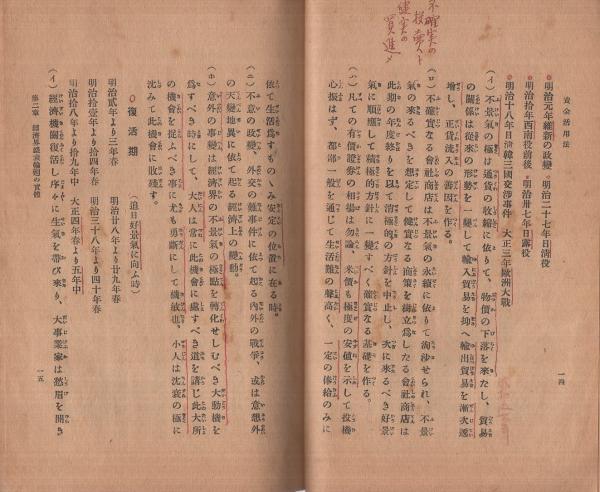 不確実の
投売り
健実の
買進メ
資金活用法
一四
明治元年維新の政變 明治二十七年日淸役
明治拾年西南役前後 明治卅七年日露役
明治十八年日淸韓三國交渉事件 大正三年歐洲大戰
(イ) 不景氣の極は通貨の收縮に依りて、物價の下落を來たし、貿易
の關係は從來の形勢を一變して輸入貿易を抑へ輸出貿易を漸次遞
增し、正貨流入の善因を作る。
(ロ) 不確實なる會社商店は不景氣の永續に依りて淘汰せられ、不景
氣の來るべきを想定して健實なる商策を樹立爲したる會社商店は
此期の年度終りを以て消極的の方針を中止し、次に來るべき好景
氣に順應して積極的方針に一變すべく確實なる基礎を作る。
(ハ) 凡ての有價證券の相塲は勿論、米價も極度の安値を示して投機
心振はず、都鄙一般を通じて生活難の聲高く、一定の俸給のみに
依て生活爲すものゝみ安定の位置に在る時。
(ニ) 不意の政變、外交の難事件に依て起る內外の戰爭、或は意想外
の天變地異に依て起る經濟上の變動。
(ホ) 意外の事變は經濟界の不景氣の極點を轉化せしむべき大動機を
爲すべき時にして、大人は常に此機會に處すべき道を講じ此大所
の機會を捉ふべき事に尤も勇斷にして機敏也、小人は沈衰の極に
沈みて此機會に敗殘す。
復活期 (追日好景氣に向ふ時)
明治貳年より三年春 明治廿八年より廿九年春
明治拾壹年より拾四年春 明治三十八年より四十年春
明治拾八年より拾九年中 大正四年春より五年中
(イ) 經濟機關復活し序々に生氣を帶び來り、大事業家は愁眉を開き
第二章 經濟界盛衰輪廻の實體
一五